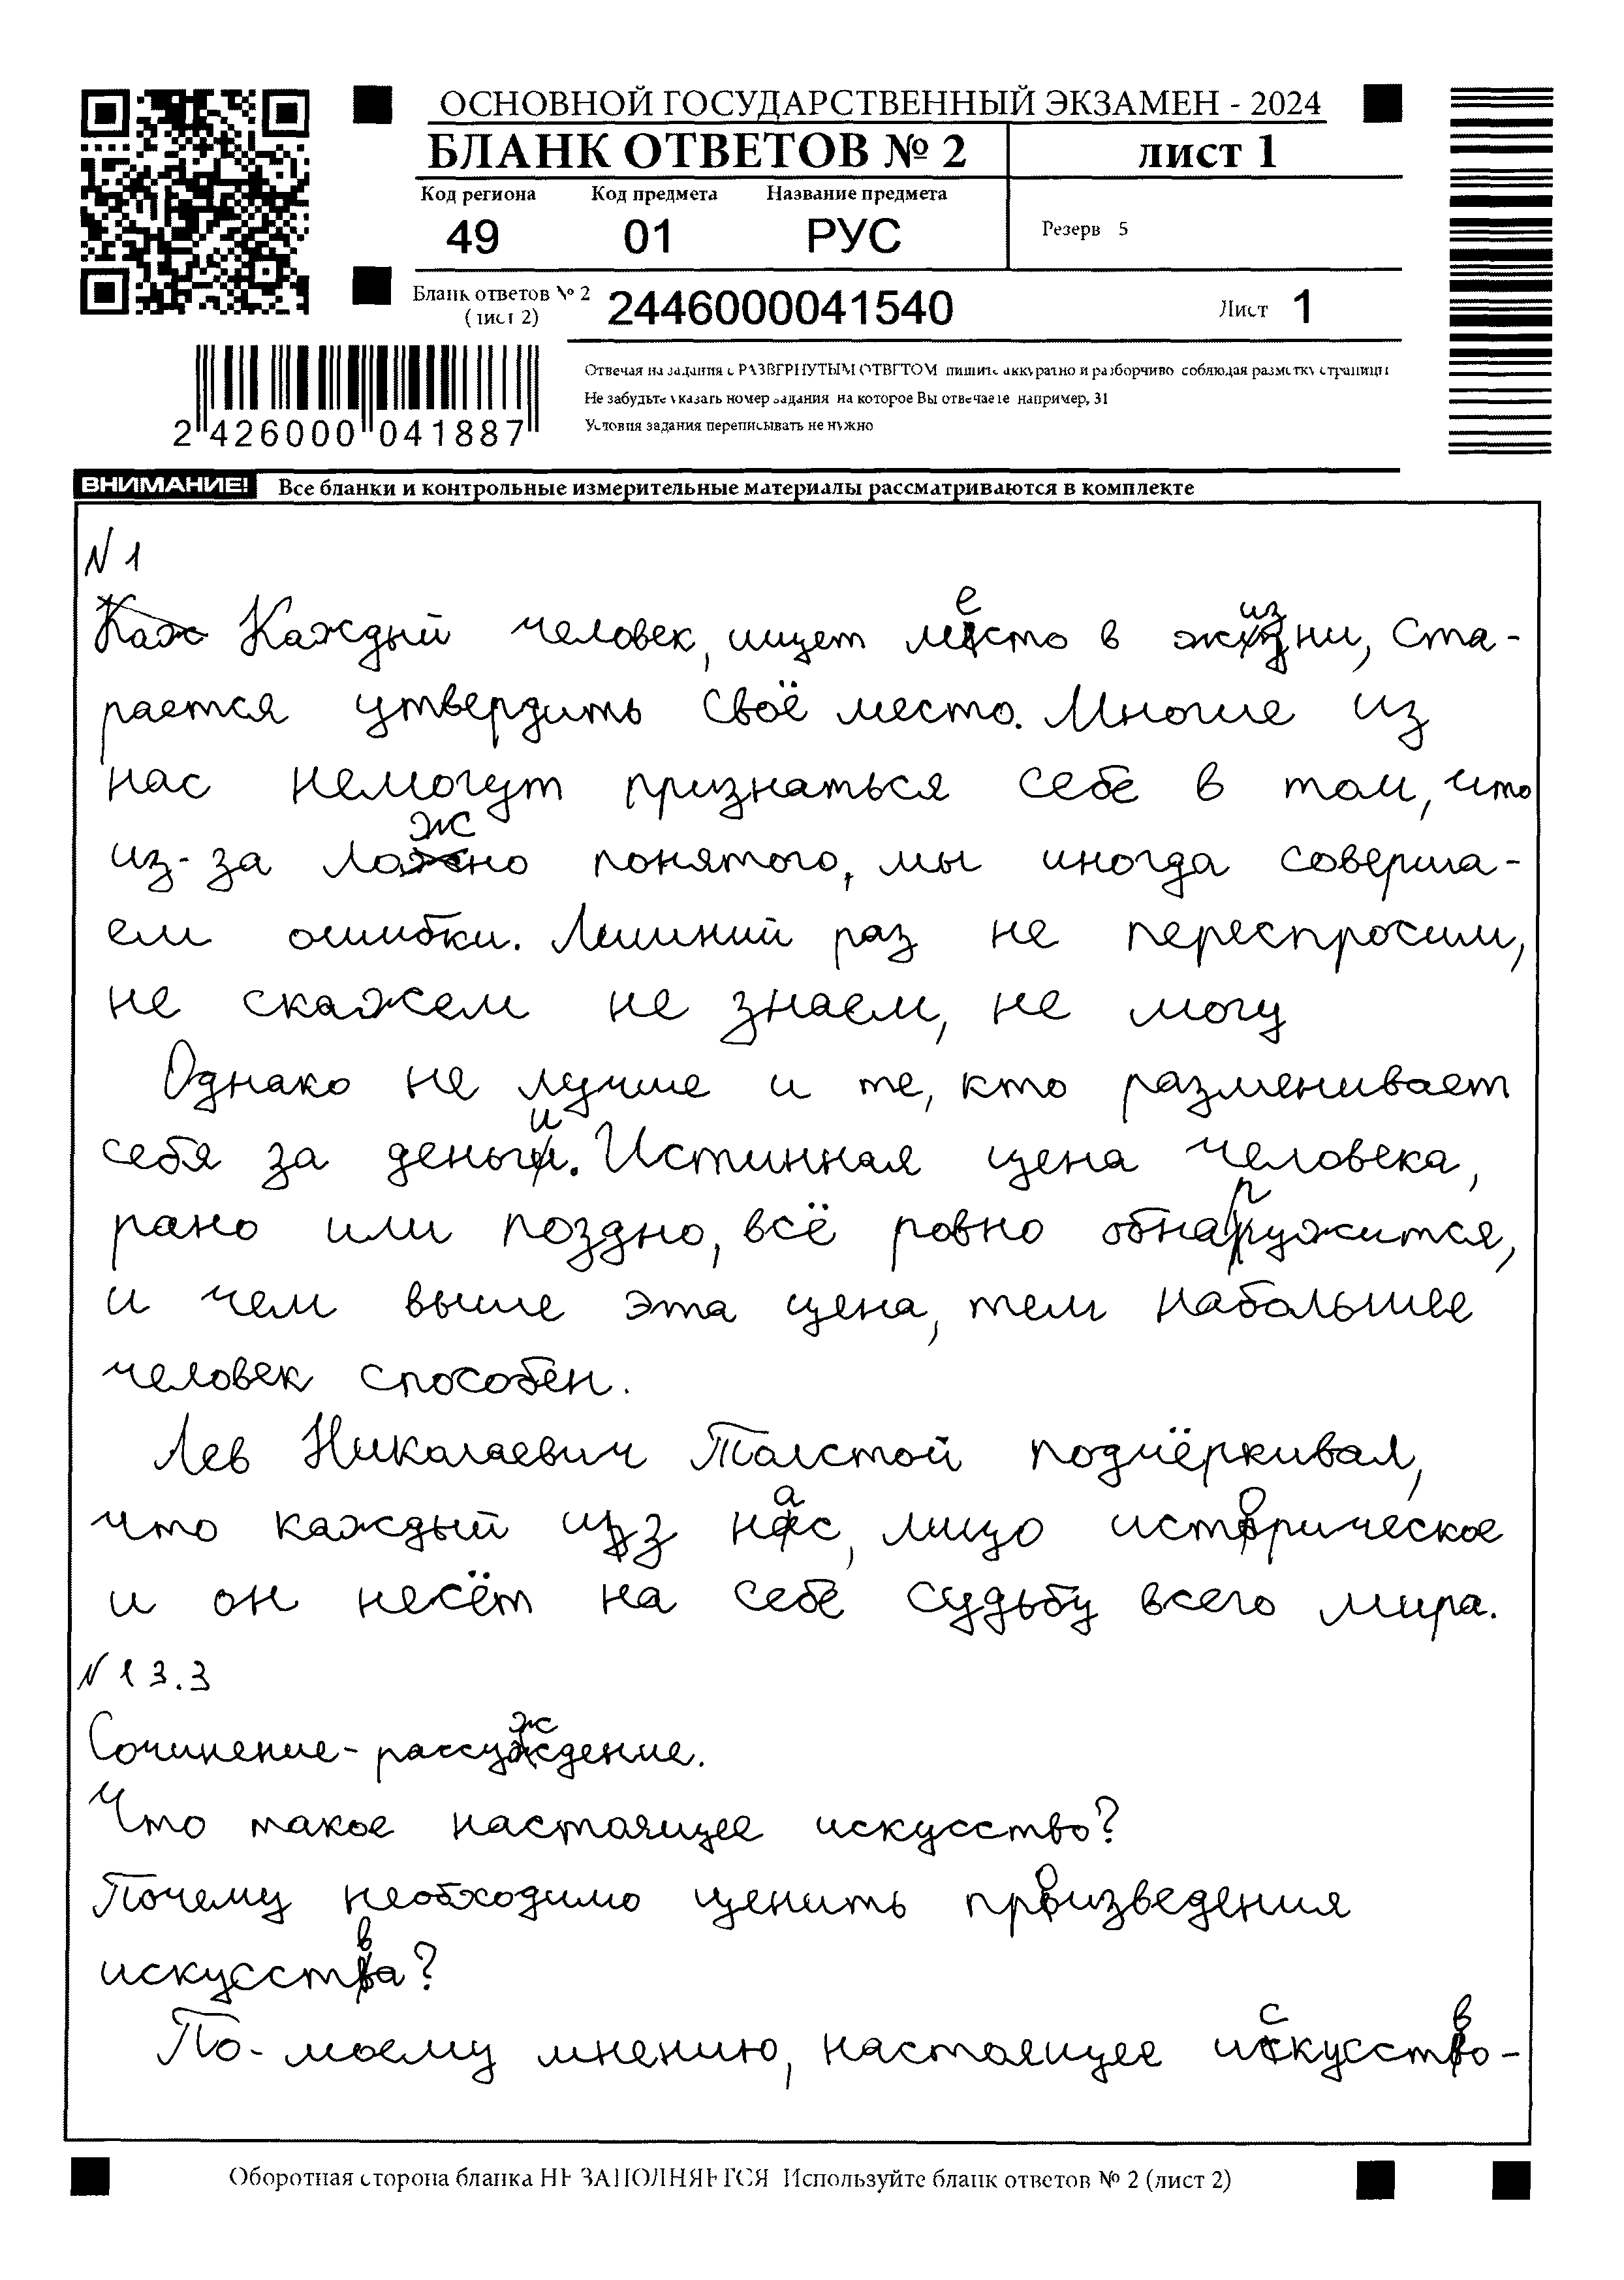 ОСНОВНОЙ ГОСУДАРСТВЕННЫЙ ЭКЗАМЕН - 2024
БЛАНК ОТВЕТОВ № 2
лист 1
Код региона Код предмета Название предмета
49 01 РУС
Резерв 5
Бланк ответов № 2
(лист 2)
2446000041540
Лист 1
Отвечая на задания с РАЗВЕРНУТЫМ ОТВЕТОМ пишите аккуратно и разборчиво соблюдая разметку страницы
Не забудьте указать номер задания на которое Вы отвечаете например, 31
Условия задания переписывать не нужно
2 426000 041887
ВНИМАНИЕ! Все бланки и контрольные измерительные материалы рассматриваются в комплекте
N 1
Каж Каждый человек, ищет место в жизни, ста-
рается утвердить своё место. Многие из
нас немогут признаться себе в том, что
из-за ложно понятого, мы иногда соверша-
ем ошибки. Лишний раз не переспросим,
не скажем не знаем, не могу
Однако не лучше и те, кто разменивает
себя за деньги. Истинная цена человека,
рано или поздно, всё ровно обнаружится,
и чем выше эта цена, тем набольшее
человек способен.
Лев Николаевич Толстой подчёркивал,
что каждый из нас, лицо историческое
и он несёт на себе судьбу всего мира.
N 13.3
Сочинение-рассуждение.
Что такое настоящее искусство?
Почему необходимо ценить произведения
искусства?
По-моему мнению, настоящее искусство-
Оборотная сторона бланка НЕ ЗАПОЛНЯЕТСЯ Используйте бланк ответов № 2 (лист 2)